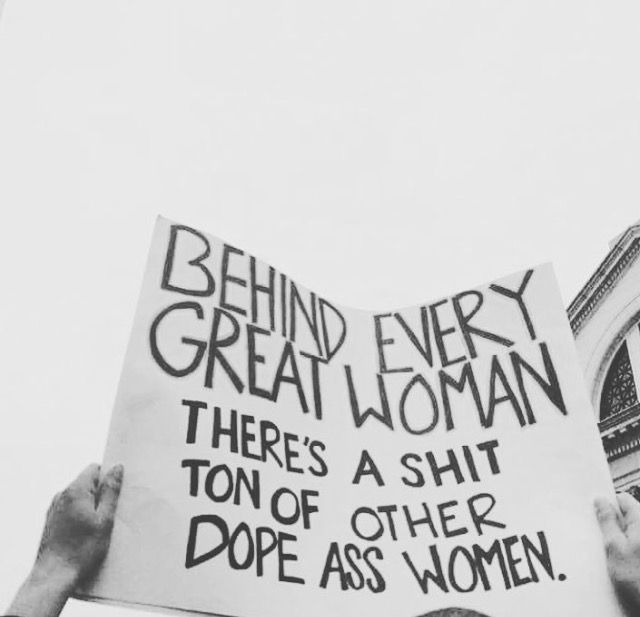 BEHIND EVERY
GREAT WOMAN
THERE'S A SHIT
TON OF OTHER
DOPE ASS WOMEN.